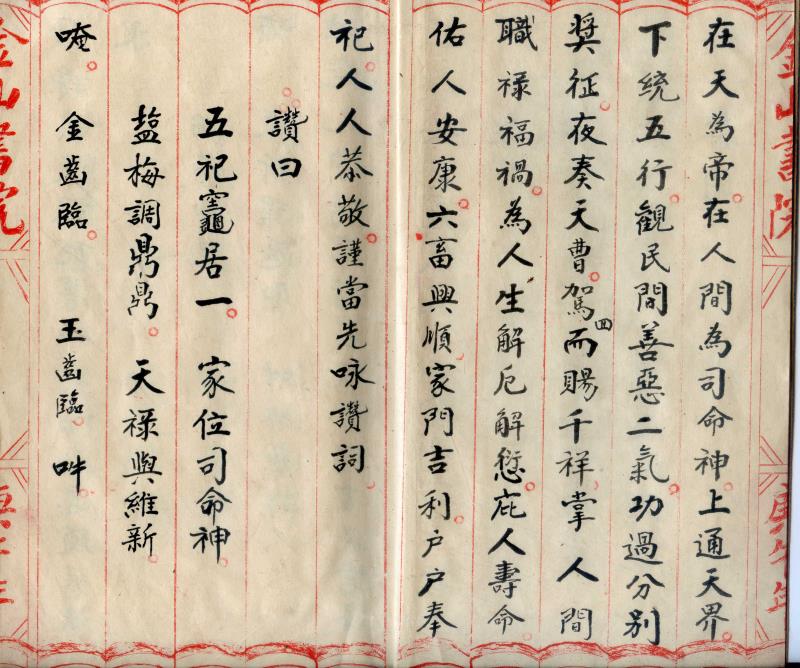 在天為帝。在人間為司命神。上通天界。
下统五行。観民間善惡二氣。功過分别
奨征。夜奏天曹。駕四而賜千祥。掌人間
職禄福禍。為人生解厄解愆。庇人壽命。
佑人安康。六畜興順。家門吉利。户户奉
祀。人人恭敬。謹當先咏讚詞
讚曰。
五祀竈居一。 家位司命神。
盐梅調鼎鼎。 天禄與維新。
唵。 金齒臨。 玉齒臨。 吽
金山書院